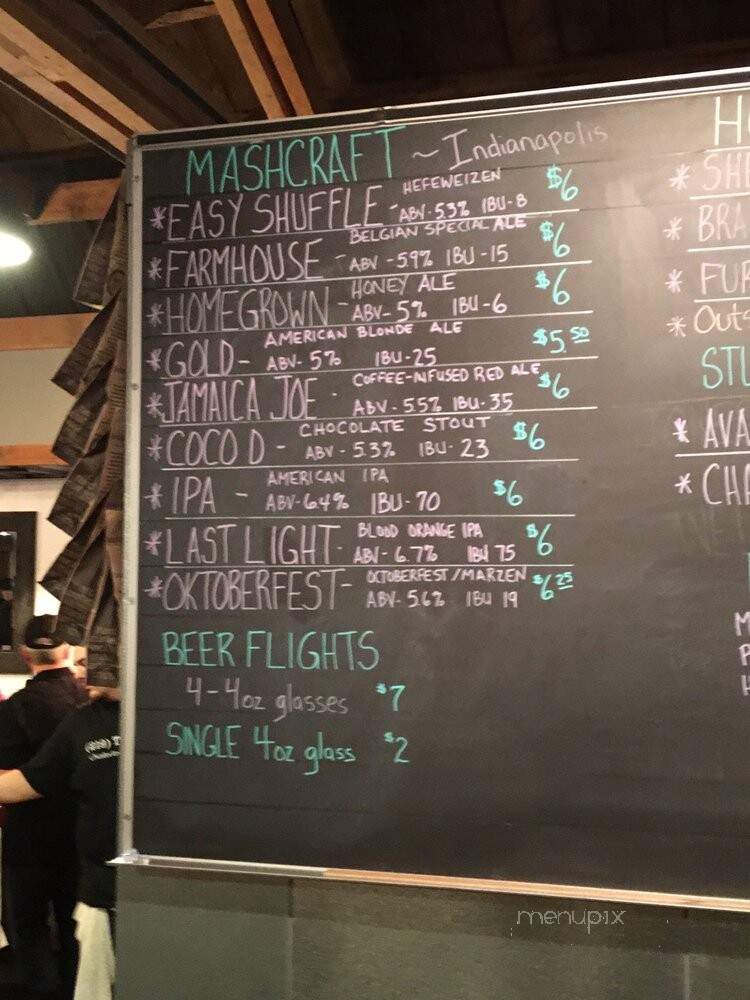 MASHCRAFT ~ Indianapolis
* EASY SHUFFLE - HEFEWEIZEN $6
ABV-5.3% IBU-8
* FARMHOUSE - BELGIAN SPECIAL ALE $6
ABV-5.9% IBU-15
* HOMEGROWN - HONEY ALE $6
ABV-5% IBU-6
* GOLD - AMERICAN BLONDE ALE $5.50
ABV-5% IBU-25
* JAMAICA JOE - COFFEE-INFUSED RED ALE $6
ABV-5.5% IBU-35
* COCO D - CHOCOLATE STOUT $6
ABV-5.3% IBU-23
* IPA - AMERICAN IPA $6
ABV-6.4% IBU-70
* LAST LIGHT - BLOOD ORANGE IPA $6
ABV-6.7% IBU 75
* OKTOBERFEST - OCTOBERFEST/MARZEN $6.25
ABV-5.6% IBU 19
BEER FLIGHTS
4-4oz glasses $7
SINGLE 4oz glass $2
H
* SH
* BRA
* FUR
* Outs
STU
* AVA
* CHO
M
P
H
menupix